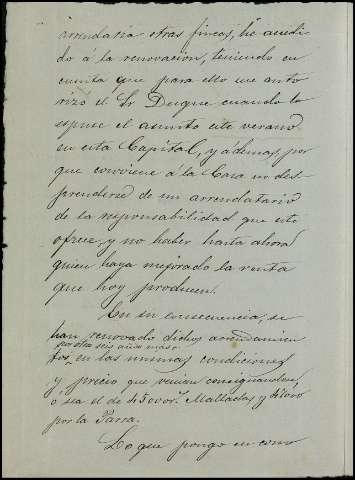 arrendaria otras fincas, he accedi-
do á la renovacion, teniendo en
cuenta que para ello me auto
rizó el Sr Duque cuando le
espuse el asunto este verano
en esta Capital, y ademas, por
que conviene á la Casa no des-
prenderse de un arrendatario
de la responsabilidad que este
ofrece, y no haber hasta ahora
quien haya mejorado la renta
que hoy producen.
En su consecuencia, se
han renovado dichos arrendamien
por otros seis años mas
tos, en las mismas condiciones
y precio que venian consignandose,
ó sea el de Malladas y
por la Parra.
Lo que pongo en cono